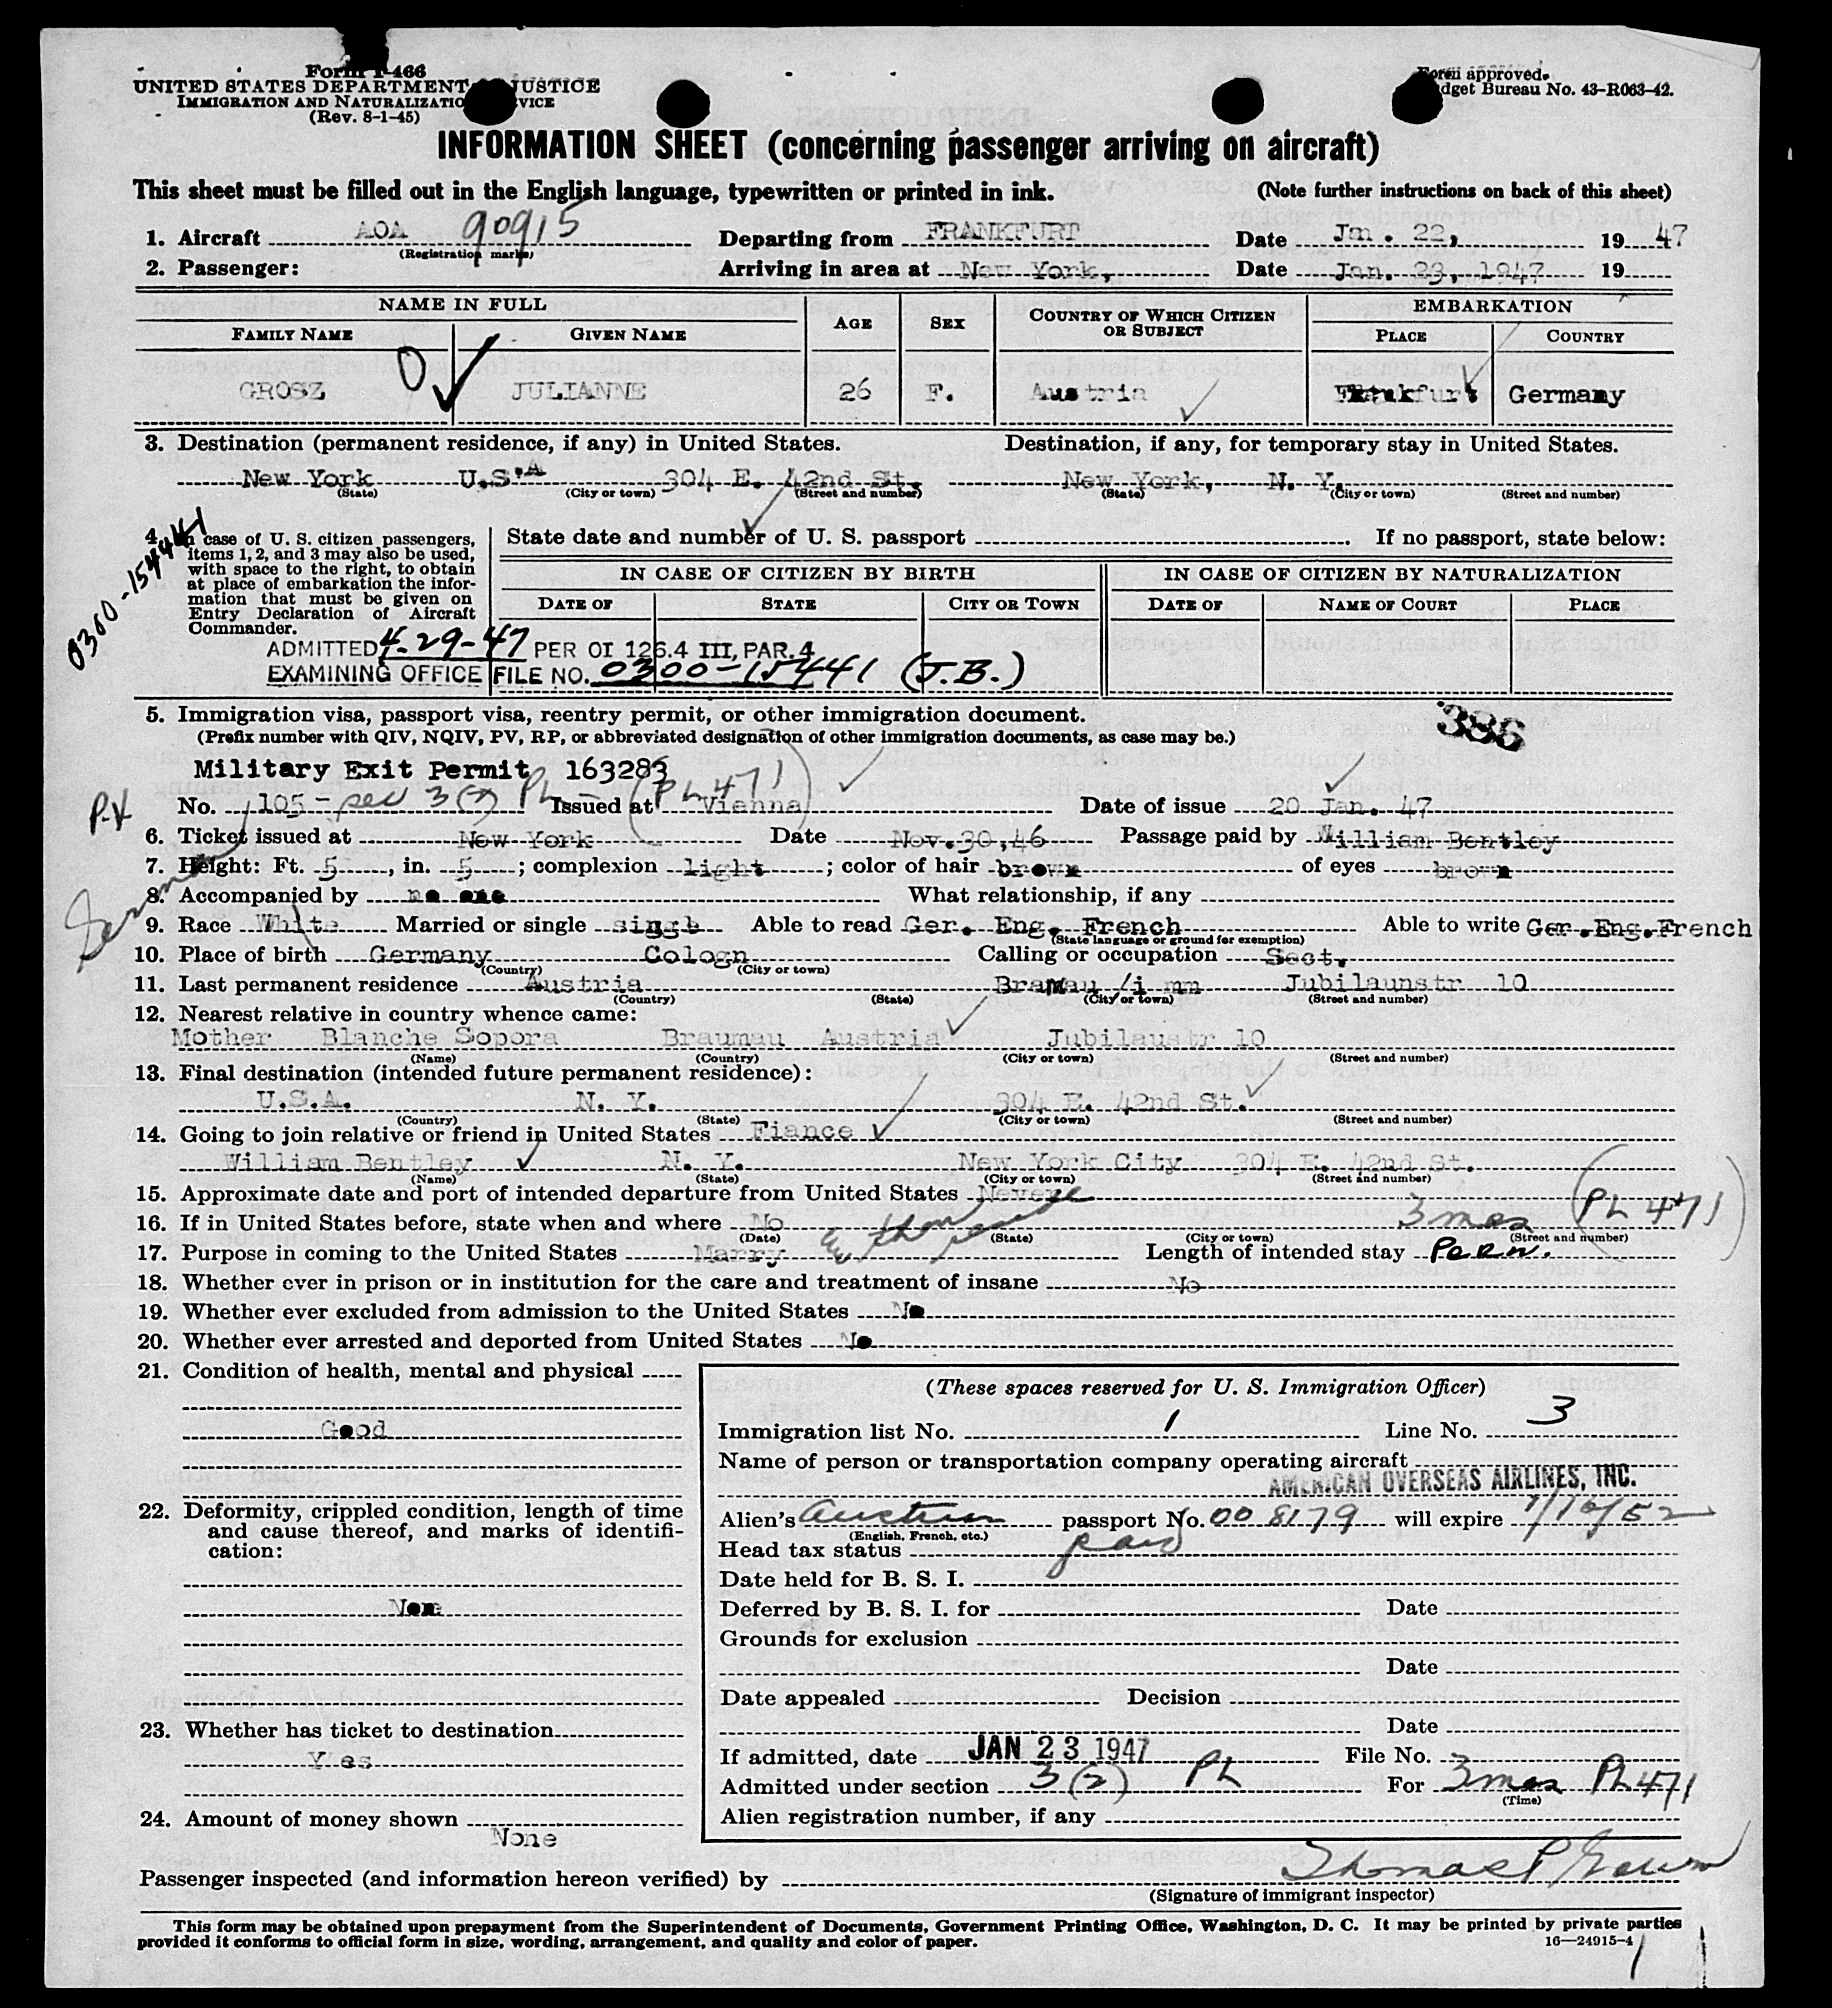 Form I-466
UNITED STATES DEPARTMENT JUSTICE
IMMIGRATION AND NATURALIZATIO VICE
(Rev. 8-1-45)
Form approved.
dget Bureau No. 43-R063-42.
INFORMATION SHEET (concerning passenger arriving on aircraft)
This sheet must be filled out in the English language, typewritten or printed in ink. (Note further instructions on back of this sheet)
1. Aircraft AOA 90915 Departing from FRANKFURT Date Jan. 22, 1947
(Registration marks)
2. Passenger: Arriving in area at New York, Date Jan. 23, 1947 19
NAME IN FULL AGE SEX COUNTRY OF WHICH CITIZEN OR SUBJECT EMBARKATION
FAMILY NAME GIVEN NAME PLACE COUNTRY
GROSZ JULIANNE 26 F. Austria Frankfurt Germany
3. Destination (permanent residence, if any) in United States. Destination, if any, for temporary stay in United States.
New York U.S.A 304 E. 42nd St. New York, N. Y.
(State) (City or town) (Street and number) (State) (City or town) (Street and number)
0300-15441
4. In case of U. S. citizen passengers, items 1, 2, and 3 may also be used, with space to the right, to obtain at place of embarkation the information that must be given on Entry Declaration of Aircraft Commander.
State date and number of U. S. passport If no passport, state below:
IN CASE OF CITIZEN BY BIRTH IN CASE OF CITIZEN BY NATURALIZATION
DATE OF STATE CITY OR TOWN DATE OF NAME OF COURT PLACE
ADMITTED 4-29-47 PER OI 126.4 III, PAR. 4
EXAMINING OFFICE FILE NO. 0300-15441 (J.B.)
5. Immigration visa, passport visa, reentry permit, or other immigration document. 386
(Prefix number with QIV, NQIV, PV, RP, or abbreviated designation of other immigration documents, as case may be.)
Military Exit Permit 163283
No. 105 - sec 3(2) PL (PL 471) Issued at Vienna Date of issue 20 Jan. 47
6. Ticket issued at New York Date Nov.30,46 Passage paid by William Bentley
7. Height: Ft. 5, in. 5; complexion light; color of hair brown of eyes brown
8. Accompanied by no one What relationship, if any
9. Race White Married or single single Able to read Ger. Eng. French Able to write Ger.Eng.French
(State language or ground for exemption)
10. Place of birth Germany Cologn Calling or occupation Sect.
(Country) (City or town)
11. Last permanent residence Austria Braunau /i nn Jubilaunstr 10
(Country) (State) (City or town) (Street and number)
12. Nearest relative in country whence came:
Mother Blanche Sopora Braunau Austria Jubilaustr 10
(Name) (Country) (City or town) (Street and number)
13. Final destination (intended future permanent residence):
U.S.A. N. Y. 304 E. 42nd St.
(Country) (State) (City or town) (Street and number)
14. Going to join relative or friend in United States Fiance
William Bentley N. Y. New York City 304 E. 42nd St.
(Name) (State) (City or town) (Street and number)
15. Approximate date and port of intended departure from United States Never
16. If in United States before, state when and where No 3 mos (PL 471)
(Date) (State) (City or town) (Street and number)
17. Purpose in coming to the United States Marry & then reside Length of intended stay Perm.
18. Whether ever in prison or in institution for the care and treatment of insane No
19. Whether ever excluded from admission to the United States No
20. Whether ever arrested and deported from United States No
21. Condition of health, mental and physical
Good
22. Deformity, crippled condition, length of time and cause thereof, and marks of identification:
None
23. Whether has ticket to destination
Yes
24. Amount of money shown
None
(These spaces reserved for U. S. Immigration Officer)
Immigration list No. 1 Line No. 3
Name of person or transportation company operating aircraft
AMERICAN OVERSEAS AIRLINES, INC.
Alien's Austrian passport No. 008179 will expire 1/10/52
(English, French, etc.)
Head tax status paid
Date held for B. S. I.
Deferred by B. S. I. for Date
Grounds for exclusion
Date
Date appealed Decision
Date
If admitted, date JAN 23 1947 File No.
Admitted under section 3(2) PL For 3 mos PL 471
(Time)
Alien registration number, if any
Passenger inspected (and information hereon verified) by Thomas P
(Signature of immigrant inspector)
This form may be obtained upon prepayment from the Superintendent of Documents, Government Printing Office, Washington, D. C. It may be printed by private parties
provided it conforms to official form in size, wording, arrangement, and quality and color of paper.
16—24915-4